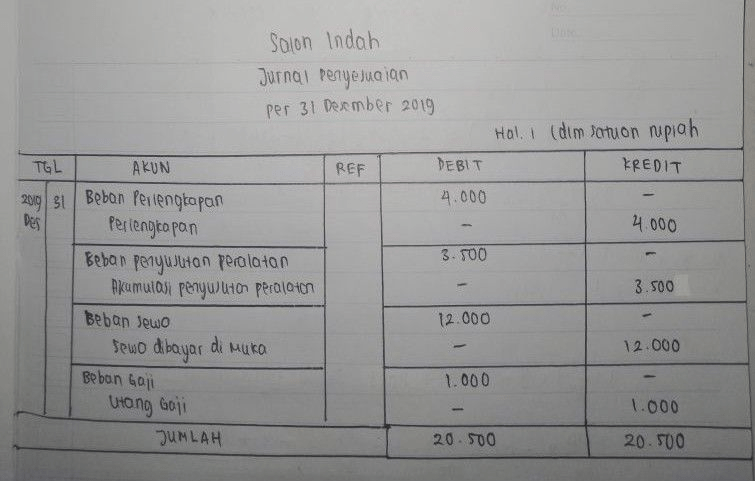 No.
Date.
Salon Indah
Jurnal Penyesuaian
Per 31 Desember 2019
Hal. 1 (dlm satuan rupiah
TGL AKUN REF DEBIT KREDIT
2019 Des 31 Beban Perlengkapan 4.000 -
Perlengkapan - 4.000
Beban penyusutan peralatan 3.500 -
Akumulasi penyusutan peralatan - 3.500
Beban sewa 12.000 -
Sewa dibayar di Muka - 12.000
Beban Gaji 1.000 -
Utang Gaji - 1.000
JUMLAH 20.500 20.500